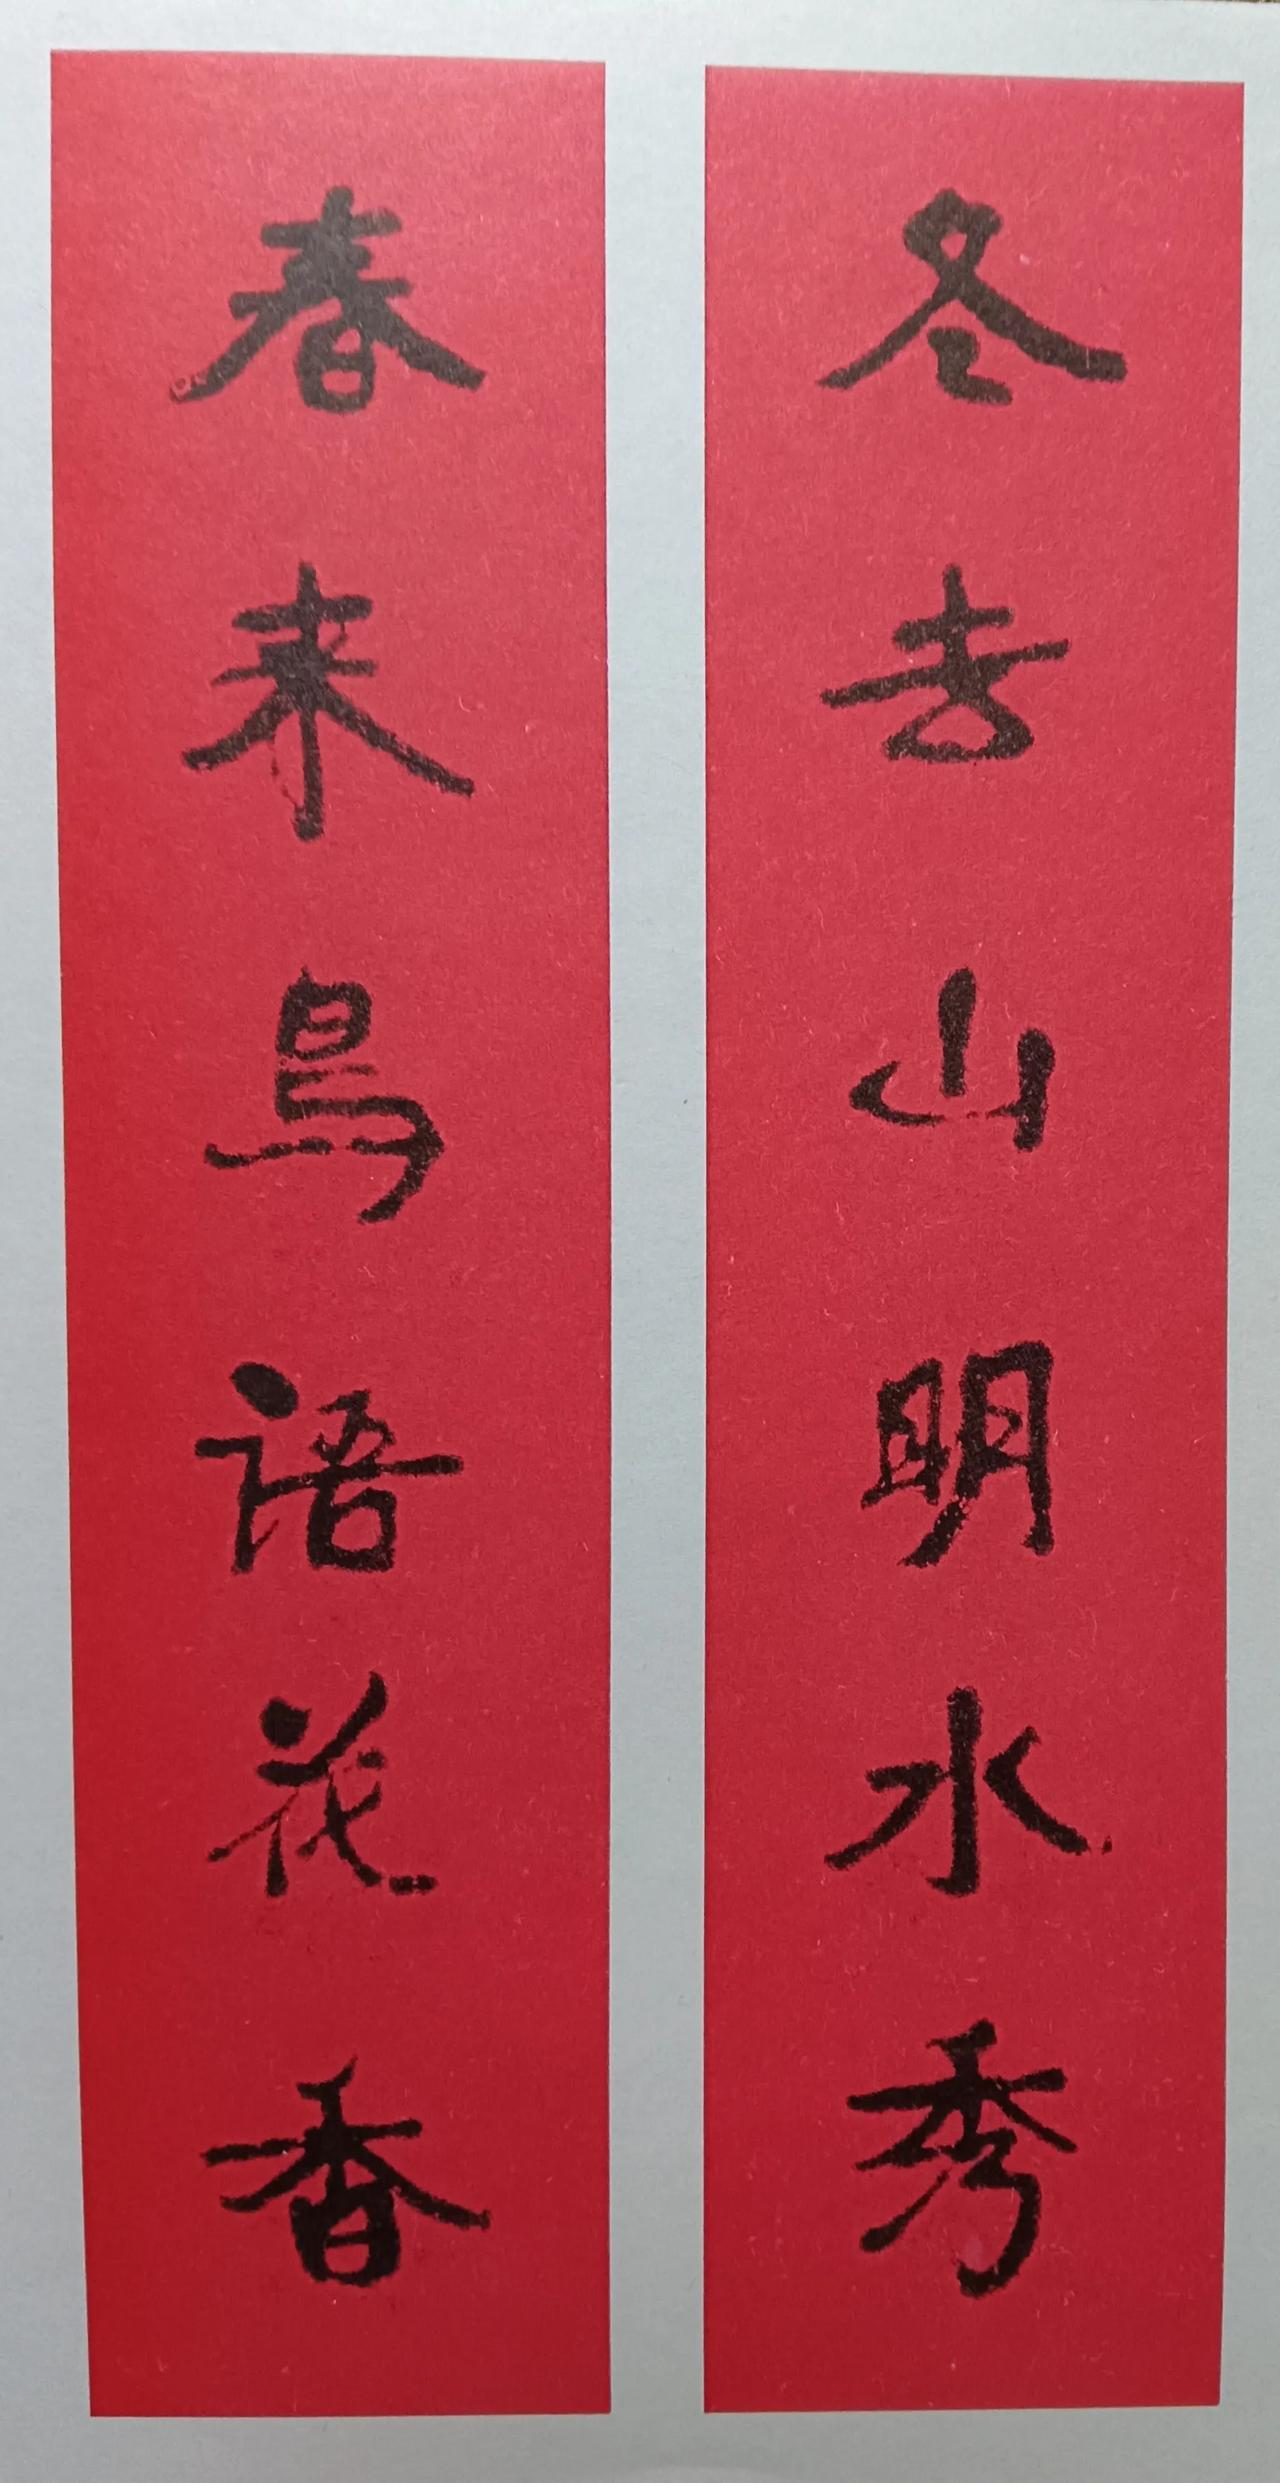 冬去山明水秀
春来鸟語花香